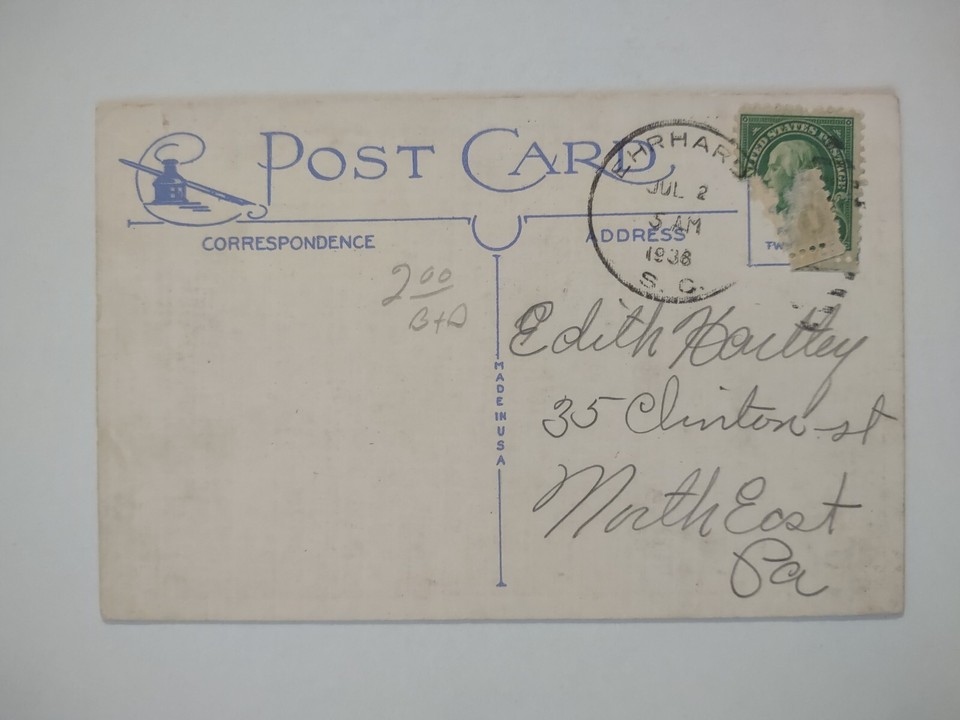 POST CARD
EHRHARDT
JUL 2
5 AM
1938
S. C.
UNITED STATES POSTAGE
CORRESPONDENCE
ADDRESS
2 00
B+D
MADE IN USA
Edith Hartley
35 Clinton st
North East
Pa